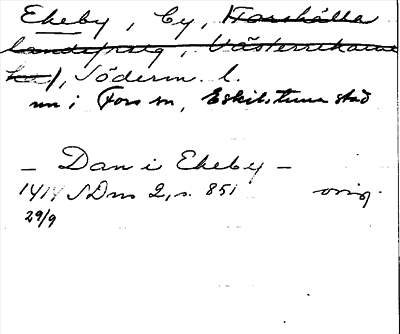 Ekeby, by, Torshälla
landskomm, Västerrekarne
hd), Söderm. l.
nu i Fors sn, Eskilstuna stad
– Dan i Ekeby –
1414 SDns 2, s. 851 orig.
29/9